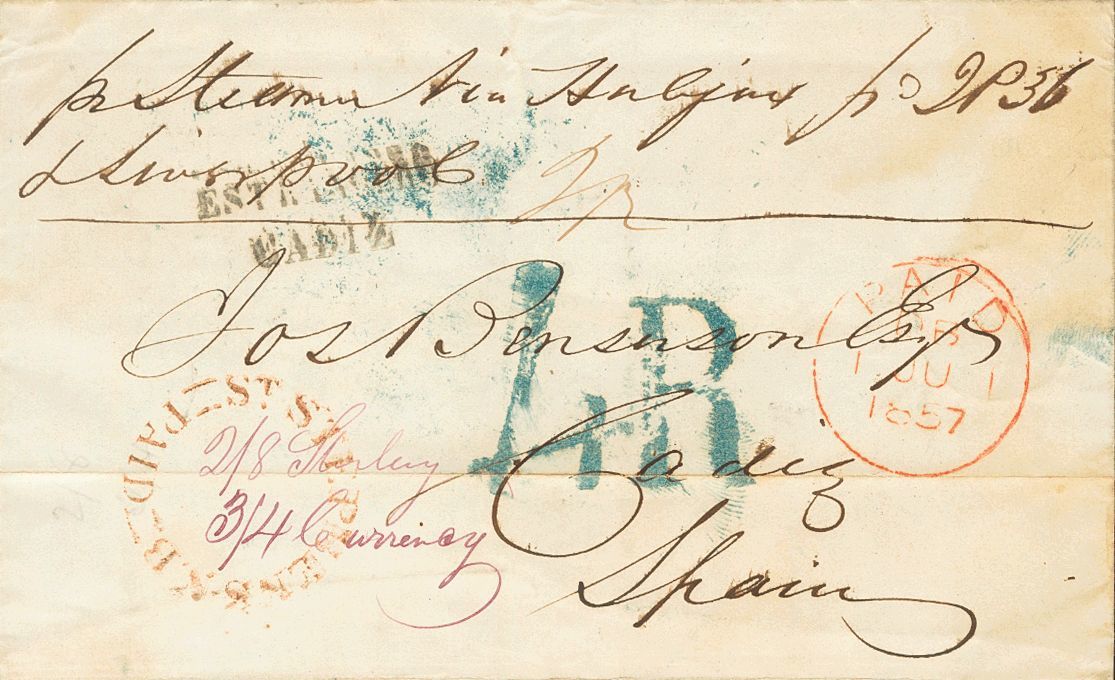 pr Steamer via Halifax pd 2P36
& Liverpool
ESTRANGERO
CADIZ
Jos Bensuson Esqr
4R
PAID
1 JU 1
1857
Cadiz
Spain
PAID
ST STEPHENS N.B.
2/8 Sterling
3/4 Currency